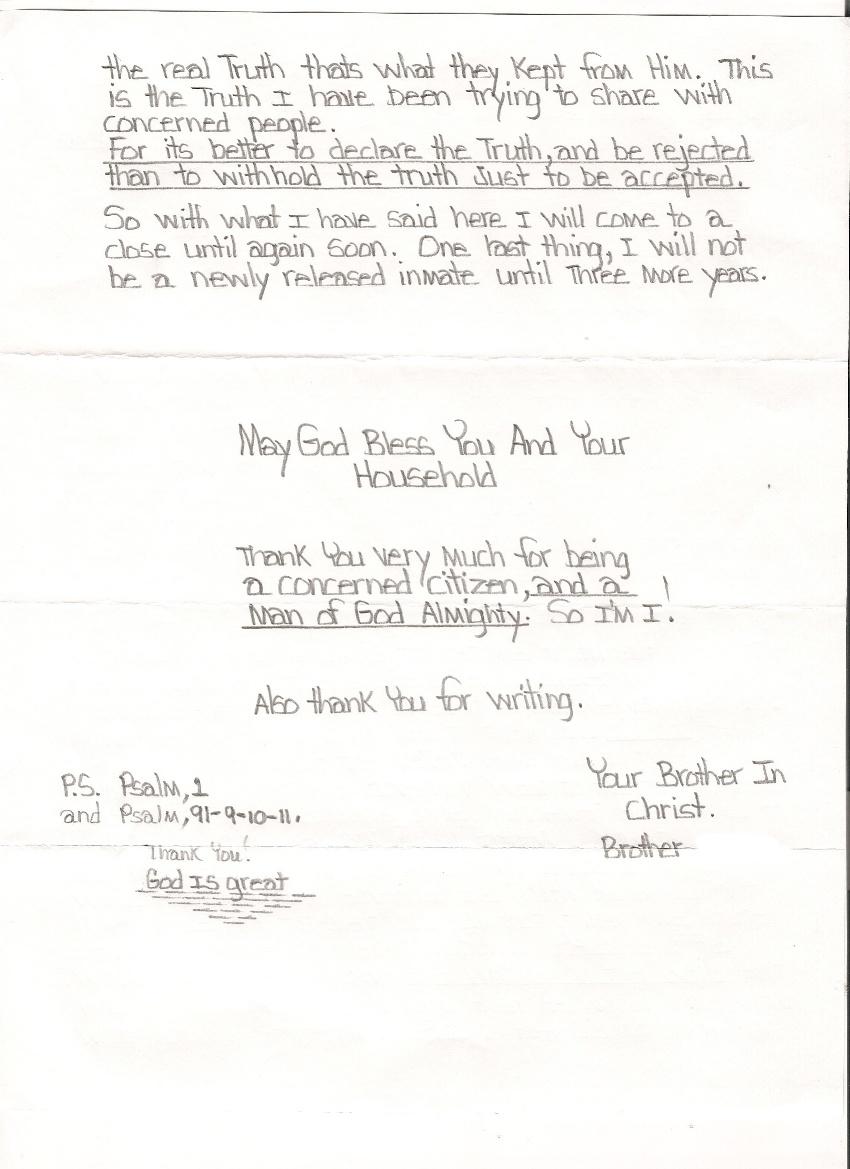 the real Truth thats what they Kept from Him. This
is the Truth I have been trying to share with
concerned people.
For its better to declare the Truth, and be rejected
than to withhold the truth Just to be accepted.
So with what I have said here I will come to a
close until again soon. One last thing, I will not
be a newly released inmate until Three More years.
May God Bless You And Your
Household
Thank You very Much for being
a concerned citizen, and a
Man of God Almighty. So I'M I!
Also thank You for writing.
P.S. Psalm, 1
and Psalm, 91-9-10-11.
Thank You!
God Is great
Your Brother In
Christ.
Brother